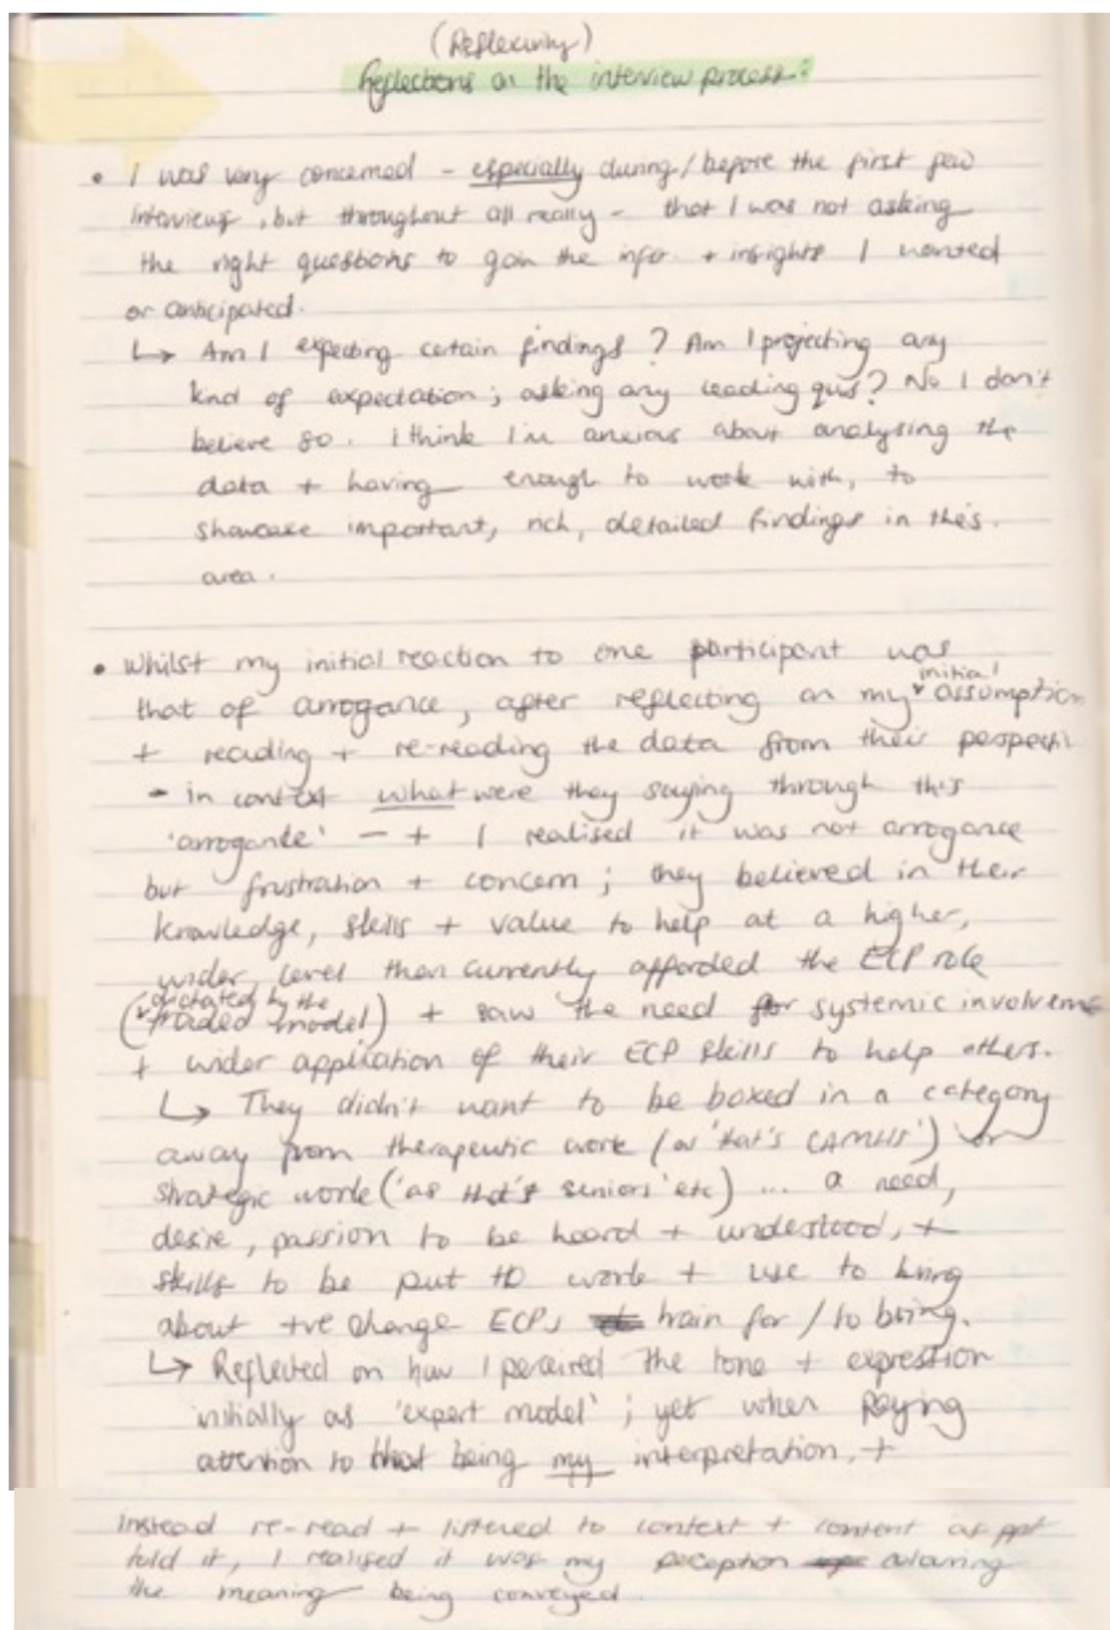 (Reflexivity)
Reflections on the interview process:
• I was very concerned - especially during/before the first few
interviews, but throughout all really - that I was not asking
the right questions to gain the info + insights I wanted
or anticipated.
↳ Am I expecting certain findings? Am I projecting any
kind of expectation; asking any leading qus? No I don't
believe so. I think I'm anxious about analysing the
data + having enough to work with, to
showcase important, rich, detailed findings in this
area.
• Whilst my initial reaction to one participant was
that of arrogance, after reflecting on my initial assumption
+ reading + re-reading the data from their perspecti
- in context what were they saying through this
'arrogance' - + I realised it was not arrogance
but frustration + concern; they believed in their
knowledge, skills + value to help at a higher,
wider, level than currently afforded the ECP role
(dictated by the traded model) + saw the need for systemic involveme
+ wider application of their ECP skills to help others.
↳ They didn't want to be boxed in a category
away from therapeutic work (as 'that's CAMHS') or
strategic work ('as that's seniors' etc) ... a need,
desire, passion to be heard + understood, +
skills to be put to work + use to bring
about +ve change ECPs train for / to bring.
↳ Reflected on how I perceived the tone + expression
initially as 'expert model'; yet when paying
attention to that being my interpretation, +
instead re-read + listened to context + content as ppt
told it, I realised it was my perception colouring
the meaning being conveyed.